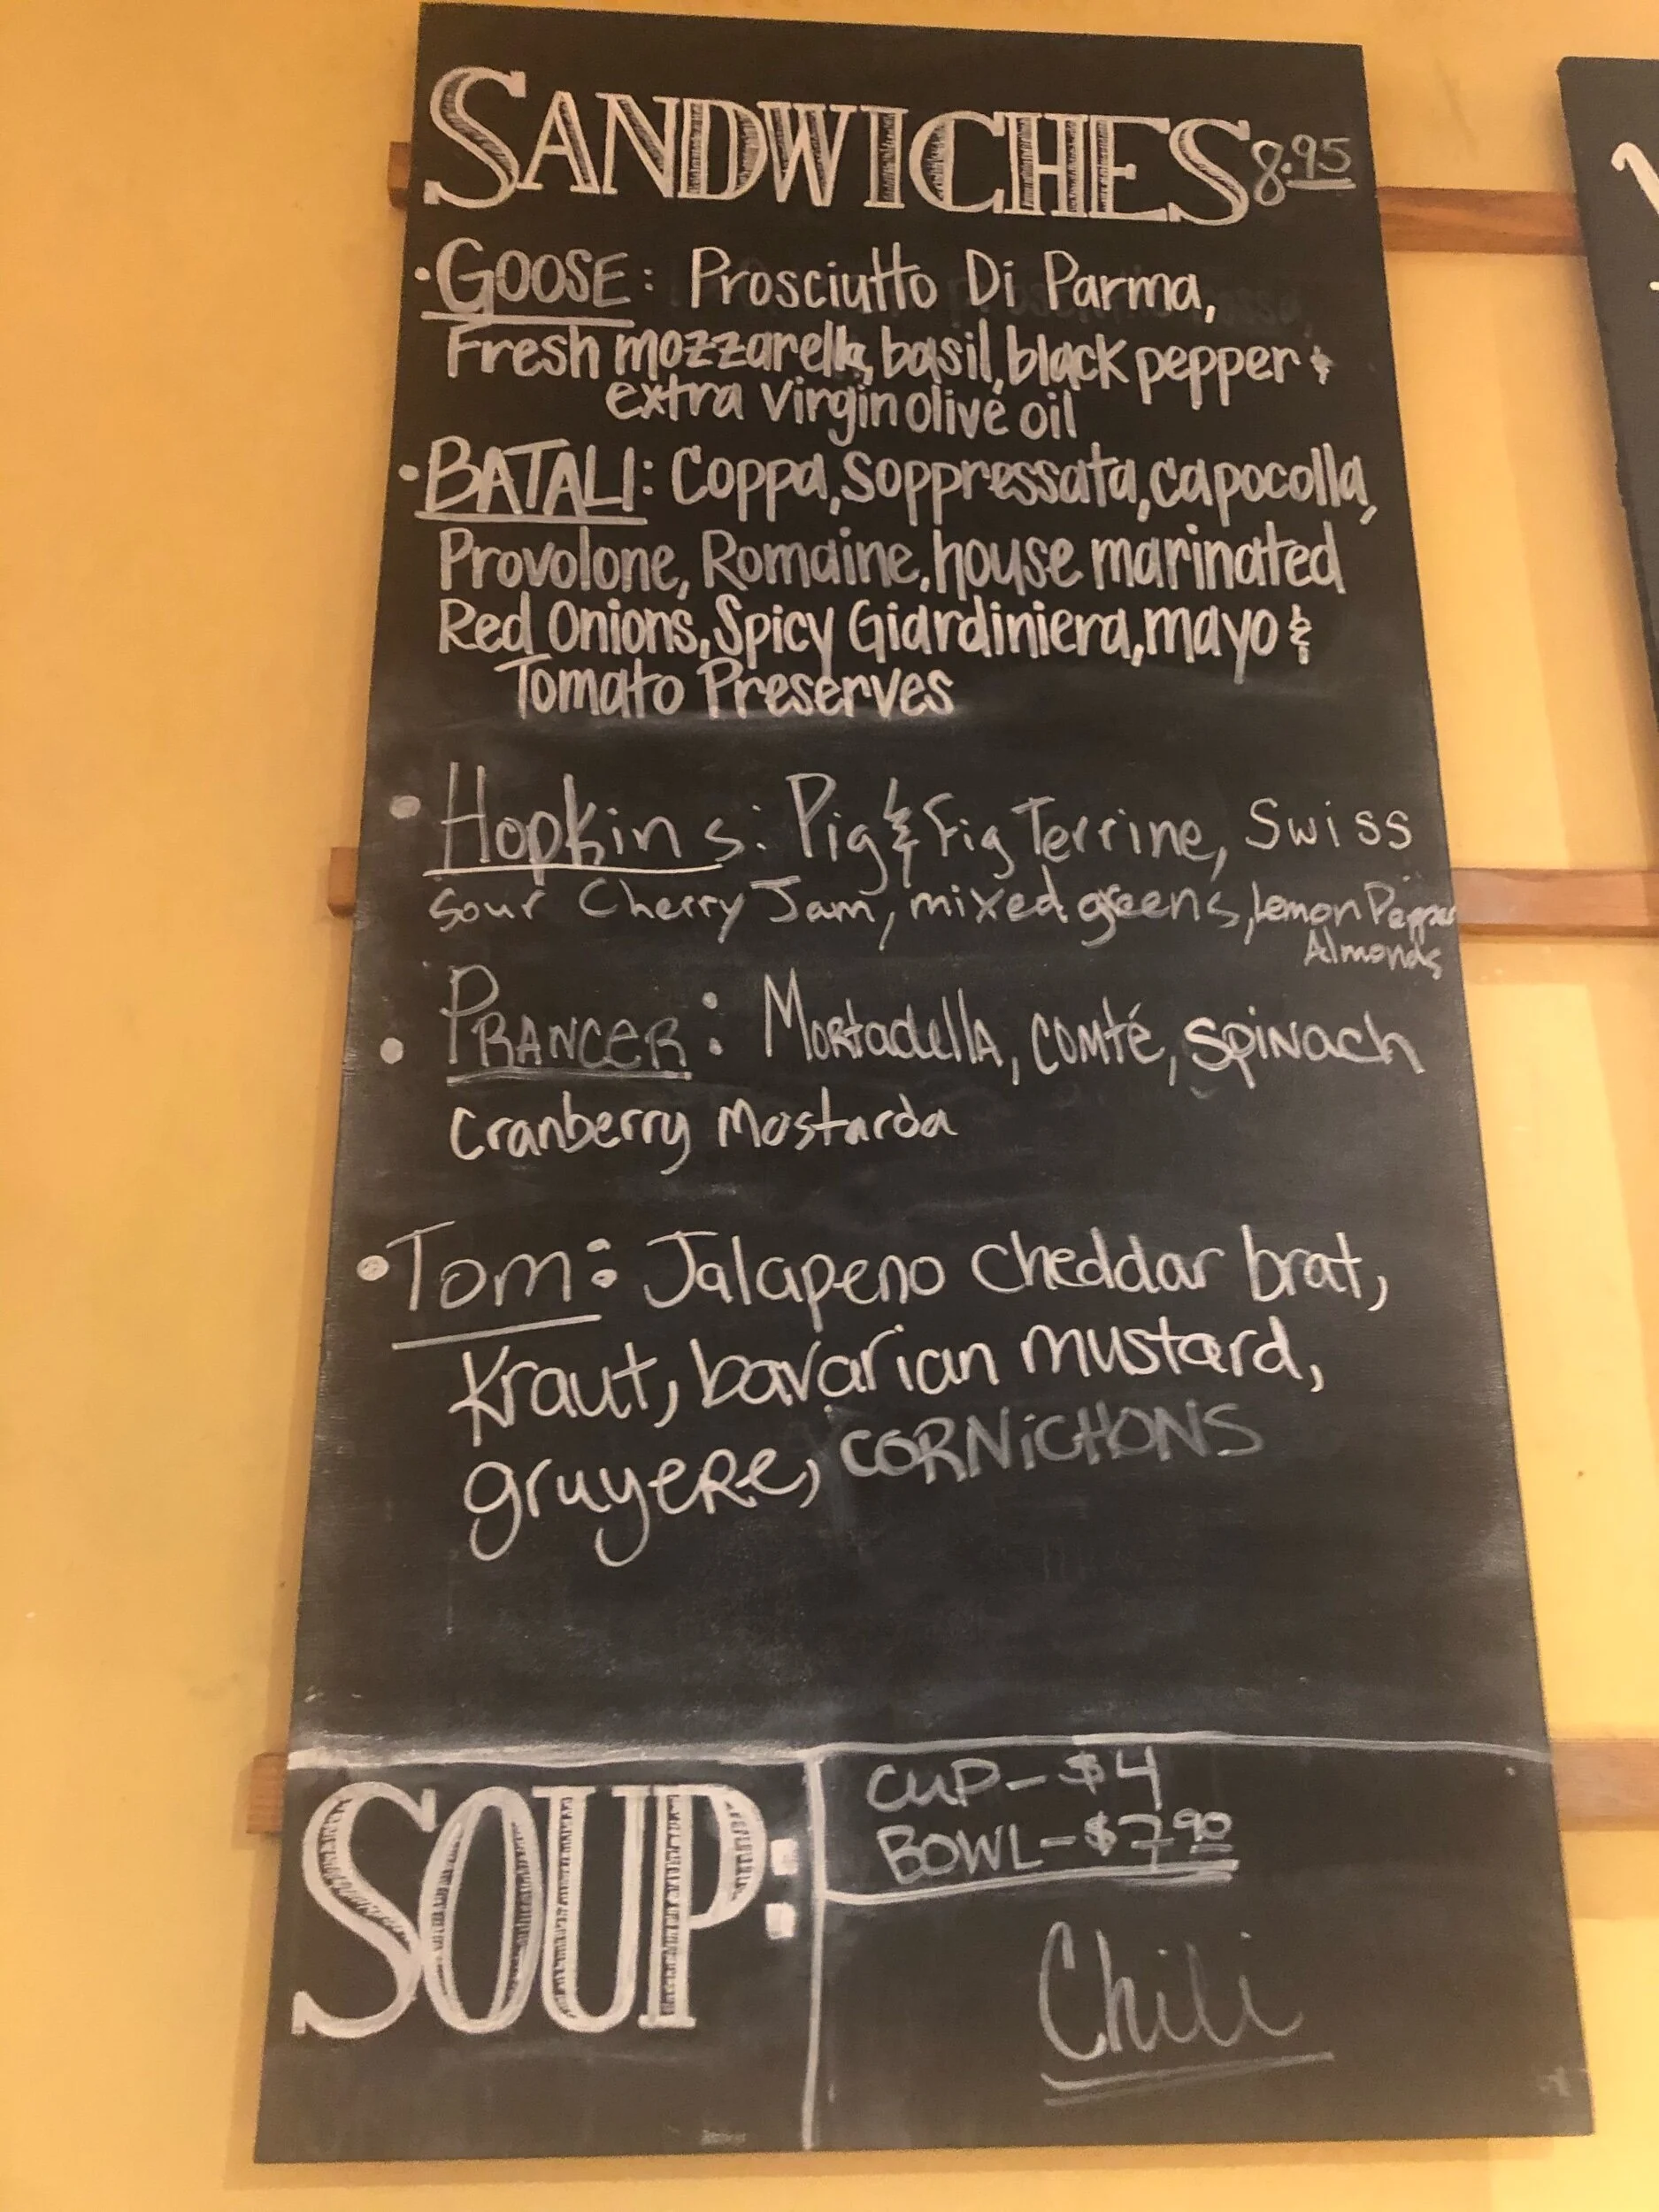 SANDWICHES 8.95
• GOOSE: Prosciutto Di Parma,
Fresh mozzarella, basil, black pepper &
extra virgin olive oil
• BATALI: Coppa, Soppressata, capocolla,
Provolone, Romaine, house marinated
Red Onions, Spicy Giardiniera, mayo &
Tomato Preserves
• Hopkins: Pig & Fig Terrine, Swiss
Sour Cherry Jam, mixed greens, Lemon Pepper
Almonds
• PRANCER: Mortadella, comté, spinach
Cranberry Mostarda
• Tom: Jalapeno cheddar brat,
Kraut, bavarian mustard,
gruyere, CORNiCHONS
SOUP:
CUP - $4
BOWL - $7.90
Chili